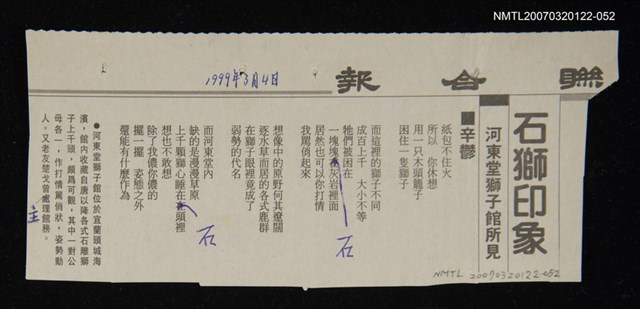 NMTL20070320122-052
1999年3月4日
聯合報
石獅印象
河東堂獅子館所見
■辛鬱
紙包不住火
所以 你休想
用一只木頭籠子
困住一隻獅子
而這裡的獅子不同
成百上千 大小不等
牠們被困在
一塊塊灰岩裡面
石
居然也可以你打情
我罵俏起來
想像中的原野何其遼闊
逐水草而居的各式鹿群
在獅子眼裡竟成了
弱勢的代名
而河東堂內
缺的是漫漫草原
上千顆獅心睡在頭裡
石
想也不敢想
除了我儂你儂的
擺一擺 姿態之外
還能有什麼作為
●河東堂獅子館位於宜蘭頭城海
濱，館內收藏自唐以降各式石雕獅
子上千頭，頗為可觀，其中一對公
母各一，作打情罵俏狀，姿勢動
人。又老友楚戈曾處理館務。
主
NMTL 20070320122-052